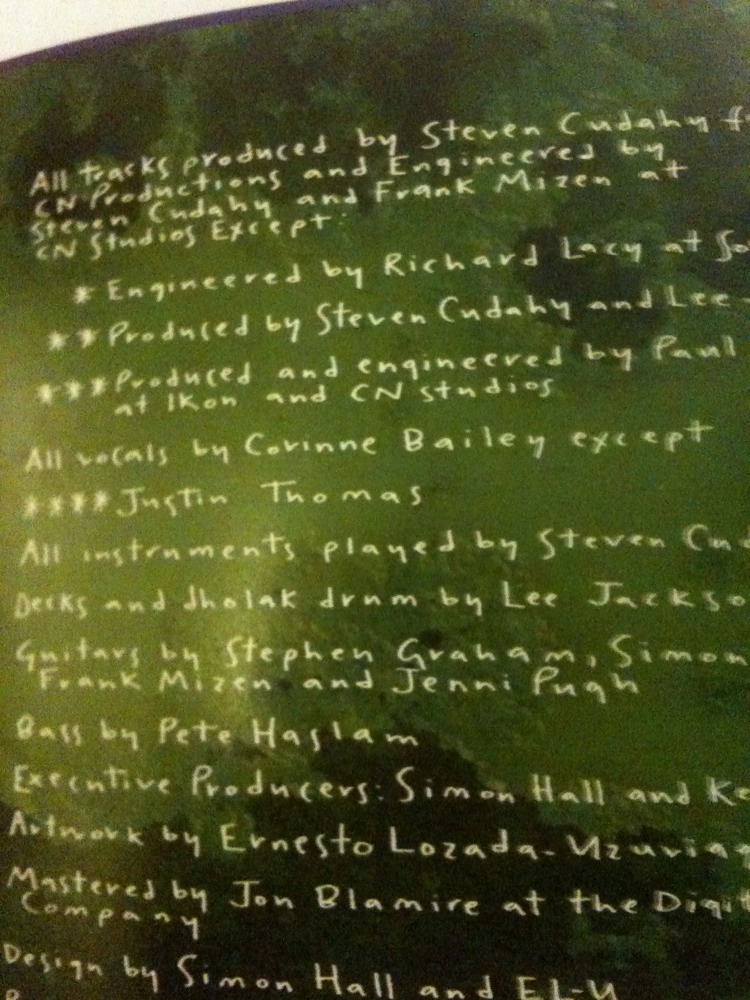 All tracks produced by Steven Cudahy
CN Productions and Engineered by
Steven Cudahy and Frank Mizen at
CN Studios Except:
* Engineered by Richard Lacy at
** Produced by Steven Cudahy and Lee
*** Produced and engineered by Paul
at Ikon and CN studios
All vocals by Corinne Bailey except
**** Justin Thomas
All instruments played by Steven
Decks and dholak drum by Lee Jackso
Guitars by Stephen Graham, Simon
Frank Mizen and Jenni Pugh
Bass by Pete Haslam
Executive Producers: Simon Hall and Ke
Artwork by Ernesto Lozada-Uzuriag
Mastered by Jon Blamire at the Digit
Company
Design by Simon Hall and EL-U